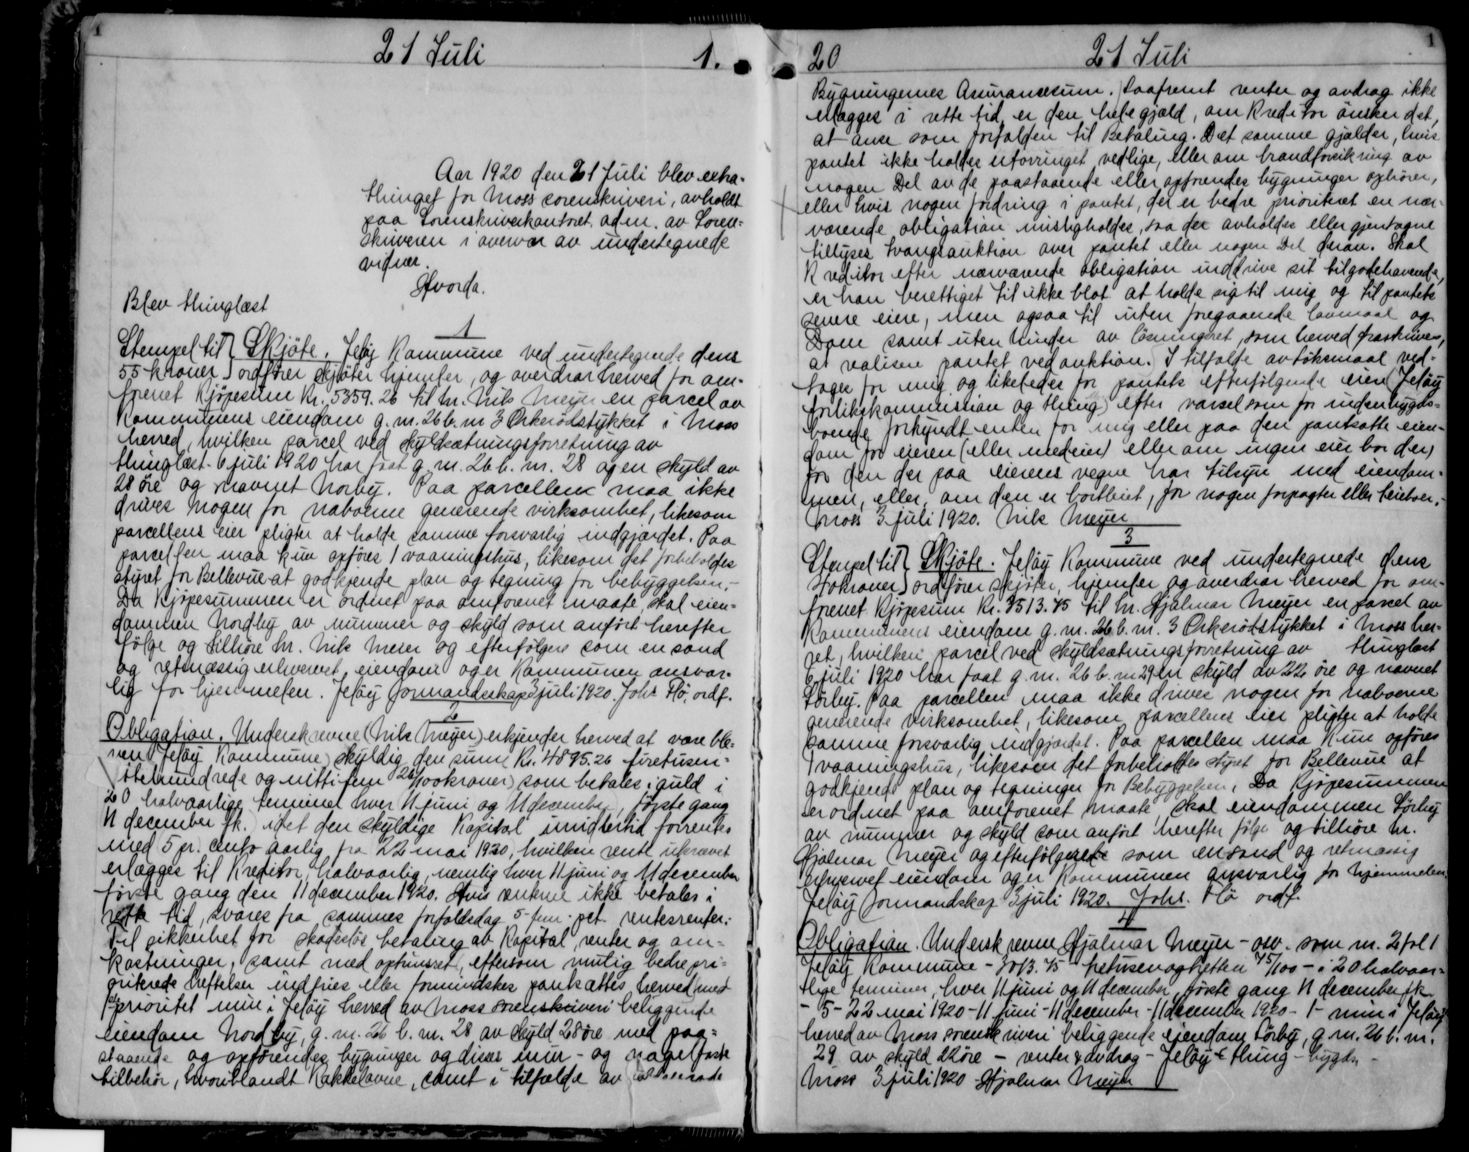 1
21 Juli
1.
Aar 1920 den 21 Juli blev extra-
thinget for Moss sorenskriveri, avholdt
paa Sorenskriverkontoret adm. av Soren-
skriveren i overvær av undertegnede
vidner.
Hvorda.
Blev thinglæst
1
Stempel til } Skjøte. Jeløy Kommune ved undertegnede dens
55 kroner } ordfører skjøter hjemler, og overdrar herved for om-
forenet Kjøpesum Kr. 5359.26 til hr. Nils Meyer en parcel av
Kommunens eiendom g.nr. 26 b.nr 3 Orkerødstykket i Moss
herred, hvilken parcel ved skyldsætningsforretning av
thinglæst 6 juli 1920 har faat g.nr. 26 b.nr. 28 og en skyld av
28 øre og navnet Norby. Paa parcellen maa ikke
drives nogen for naboerne generende virksomhet, likesom
parcellens eier pligter at holde samme forsvarlig indgjærdet. Paa
parcellen maa kun opføres 1 vaaningshus, likesom det forbeholdes
styret for Bellevue at godkjende plan og tegning for bebyggelsen.-
Da Kjøpesummen er ordnet paa omforenet maate, skal eien-
dommen Nordby av nummer og skyld som anført herefter
følge og tilhøre hr. Nils Meier og efterfølgere som en sand
og retmæssig erhvervet eiendom og er Kommunen ansvar-
lig for hjemmelen. Jeløy formandskap juli 1920. Johs Flø. ordf.
2
Obligation. Underskrevne (Nils Meyer) erkjender herved at være ble-
ven Jeløy Kommune) skyldig den sum Kr. 4895.26 firetusen-
ottehundrede og nittifem 26/100 kroner) som betales i guld i
20 halvaarlige terminer hver 11 juni og 11 december, første gang
11 december fk.) idet den skyldige Kapital imidlertid forrentes
med 5 pr. cento aarlig fra 22 mai 1920, hvilken rente ukrævet
erlægges til Kreditor, halvaarlig, nemlig hver 11 juni og 11 december
første gang den 11 december 1920. Hvis renterne ikke betales i
rette tid, svares fra sammes forfaldsdag 5-fem-pct. rentesrenter.
Til sikkerhet for skadesløs betaling av Kapital, renter og om-
kostninger, samt med optrinsret, eftersom mulig bedre pri-
oriterede heftelser indfries eller formindskes pantsættes herved med
1 prioritet min i Jeløy herred av Moss sorenskriveri beliggende
eiendom Nordby, g.nr. 26 b.nr. 28 av skyld 28 øre med paa-
staaende og opførendes bygninger og disses mur- og nagelfaste
tilbehør, hvoriblandt Kakkelovne, samt i tilfælde av
20
21 Juli
1
Bygningernes Assurancesum. Saafremt renter og avdrag ikke
erlægges i rette tid er den hele gjæld, om Kreditor ønsker det,
at anse som forfalden til Betaling. Det samme gjælder, hvis
pantet ikke holdes uforringet vedlige, eller om brandforsikring av
nogen Del av de paastaaende eller opførendes bygninger ophører,
eller hvis nogen fordring i pantet, der er bedre prioriteret en nær-
værende obligation misligholdes, saa der avholdes eller gjentagne
tillyses tvangsauktion over pantet eller nogen Del derav. Skal
Kreditor efter nærværende obligation inddrive sit tilgodehavende,
er han berettiget til ikke blot at holde sig til mig og til pantets
senere eiere, men ogsaa til uten foregaaende lovmaal og
Dom samt uten hinder av løsningsret, som herved fraskrives,
at realisere pantet ved auktion. I tilfælde av søksmaal ved-
tages for mig og likeledes for pantets efterfølgende eiere Jeløy
forlikskommission og thing) efter varsel som for indenbygds-
boende, forkyndt enten for mig eller paa den pantsatte eien-
dom for eieren (eller medeier) eller om ingen eier bor der)
for den der paa eierens vegne har tilsyn med eiendom-
men, eller, om den er bortleiet, for nogen forpagter eller leieboer.-
Moss 3 juli 1920. Nils Meyer
3
Stempel til } Skjøte. Jeløy Kommune ved undertegnede dens
kroner } ordfører skjøter, hjemler og overdrar herved for om-
forenet Kjøpesum Kr. 3513.45 til hr. Hjalmar Meyer en parcel av
Kommunens eiendom g.nr. 26 b.nr. 3 Orkerødstykket i Moss her-
red, hvilken parcel ved skyldsætningsforretning av thinglæst
6 juli 1920 har faat g.nr. 26 b.nr 29 en skyld av 22 øre og navnet
Sørby. Paa parcellen maa ikke drives nogen for naboerne
generende virksomhet, likesom parcellens eier pligter at holde
samme forsvarlig indgjærdet. Paa parcellen maa Kun opføres
1 vaaningshus, likesom det forbeholdes styret for Bellevue at
godkjende plan og tegninger for Bebyggelsen. Da Kjøpesummen
er ordnet paa omforenet maate, skal eiendommen Sørby
av nummer og skyld som anført herefter følge og tilhøre hr.
Hjalmar Meyer og efterfølgere som en sand og retmæssig
erhvervet eiendom og er Kommunen ansvarlig for hjemmelen.
Jeløy formandskap 3 juli 1920. Johs. Flø ordf.
4
Obligation. Underskrevne Hjalmar Meyer - osv. som nr. 2 fol 1
Jeløy Kommune - 3013.45 - tretusenogtretten 45/100 - i 20 halvaar-
lige terminer, hver 11 juni og 11 december, første gang 11 december fk
- 5 - 22 mai 1920 - 11 juni - 11 december - 11 december 1920 - 1 - min i Jeløy
herred av Moss sorenskriveri beliggende eiendom Sørby, g.nr. 26 b.nr.
29 av skyld 22 øre - renter & avdrag - Jeløy & thing - bygds -
Moss 3 juli 1920 Hjalmar Meyer